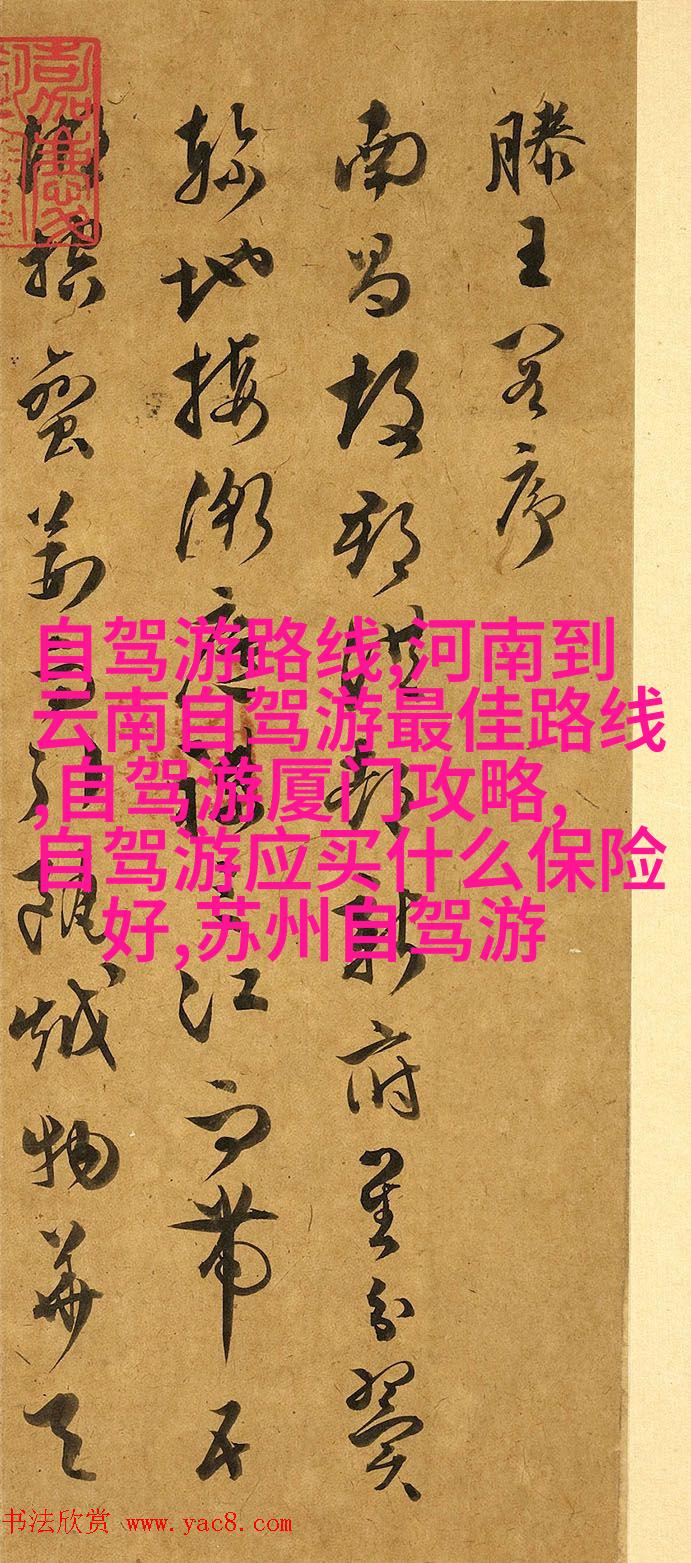 滕王閣序
南昌故郡洪都新府星分翼
軫地接衡廬襟三江而帶五
湖控蠻荊而引甌越物華天
自驾游路线,河南到
云南自驾游最佳路线
,自驾游厦门攻略,
自驾游应买什么保险
好,苏州自驾游
书法欣赏 www.yac8.com